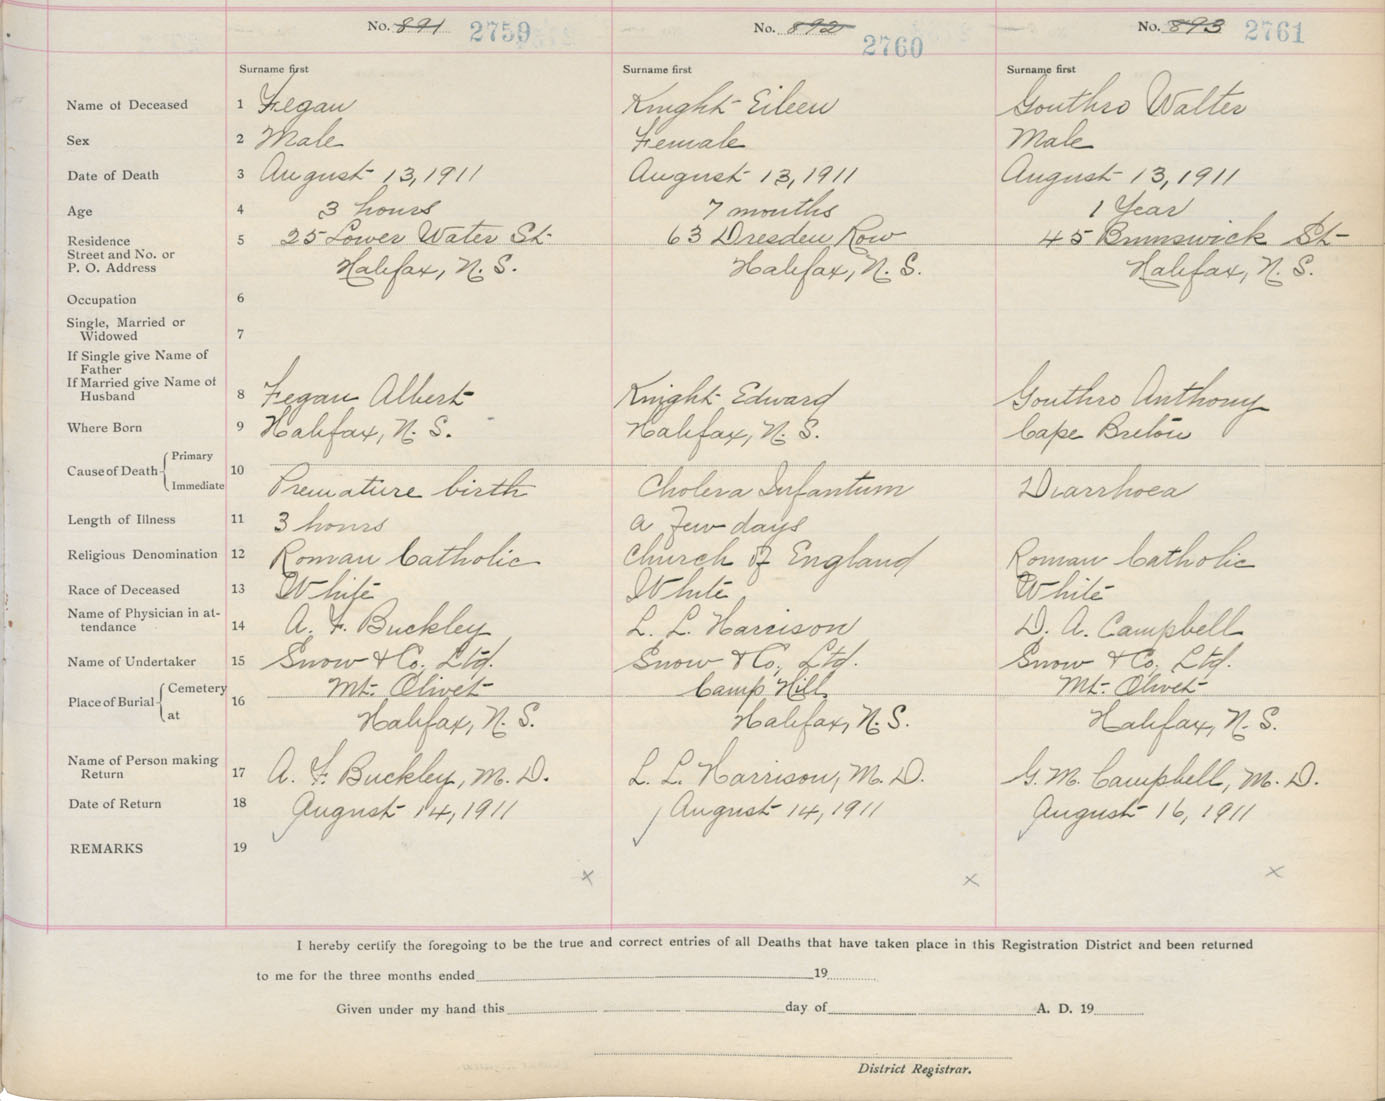 No. 891 2759 No. 892 2760 No. 893 2761
Surname first Surname first Surname first
Name of Deceased 1 Fegan Knight Eileen Gouthro Walter
Sex 2 Male Female Male
Date of Death 3 August 13, 1911 August 13, 1911 August 13, 1911
Age 4 3 hours 7 months 1 Year
Residence 5 25 Lower Water St. 63 Dresden Row 45 Brunswick St
Street and No. or
P. O. Address Halifax, N. S. Halifax, N. S. Halifax, N. S.
Occupation 6
Single, Married or
Widowed 7
If Single give Name of
Father
If Married give Name of
Husband 8 Fegan Albert Knight Edward Gouthro Anthony
Where Born 9 Halifax, N. S. Halifax, N. S. Cape Breton
Cause of Death Primary 10
Immediate Premature birth Cholera Infantum Diarrhoea
Length of Illness 11 3 hours a Few days
Religious Denomination 12 Roman Catholic Church of England Roman Catholic
Race of Deceased 13 White White White
Name of Physician in at-
tendance 14 A. F. Buckley L. L. Harrison D. A. Campbell
Name of Undertaker 15 Snow & Co. Ltd. Snow & Co. Ltd. Snow & Co. Ltd.
Place of Burial Cemetery 16 Mt. Olivet Camp Hill Mt. Olivet
at Halifax, N. S. Halifax, N. S. Halifax, N. S.
Name of Person making
Return 17 A. F. Buckley, M. D. L. L. Harrison, M. D. G. M. Campbell, M. D.
Date of Return 18 August 14, 1911 August 14, 1911 August 16, 1911
REMARKS 19
x x x
I hereby certify the foregoing to be the true and correct entries of all Deaths that have taken place in this Registration District and been returned
to me for the three months ended 19
Given under my hand this day of A. D. 19
District Registrar.